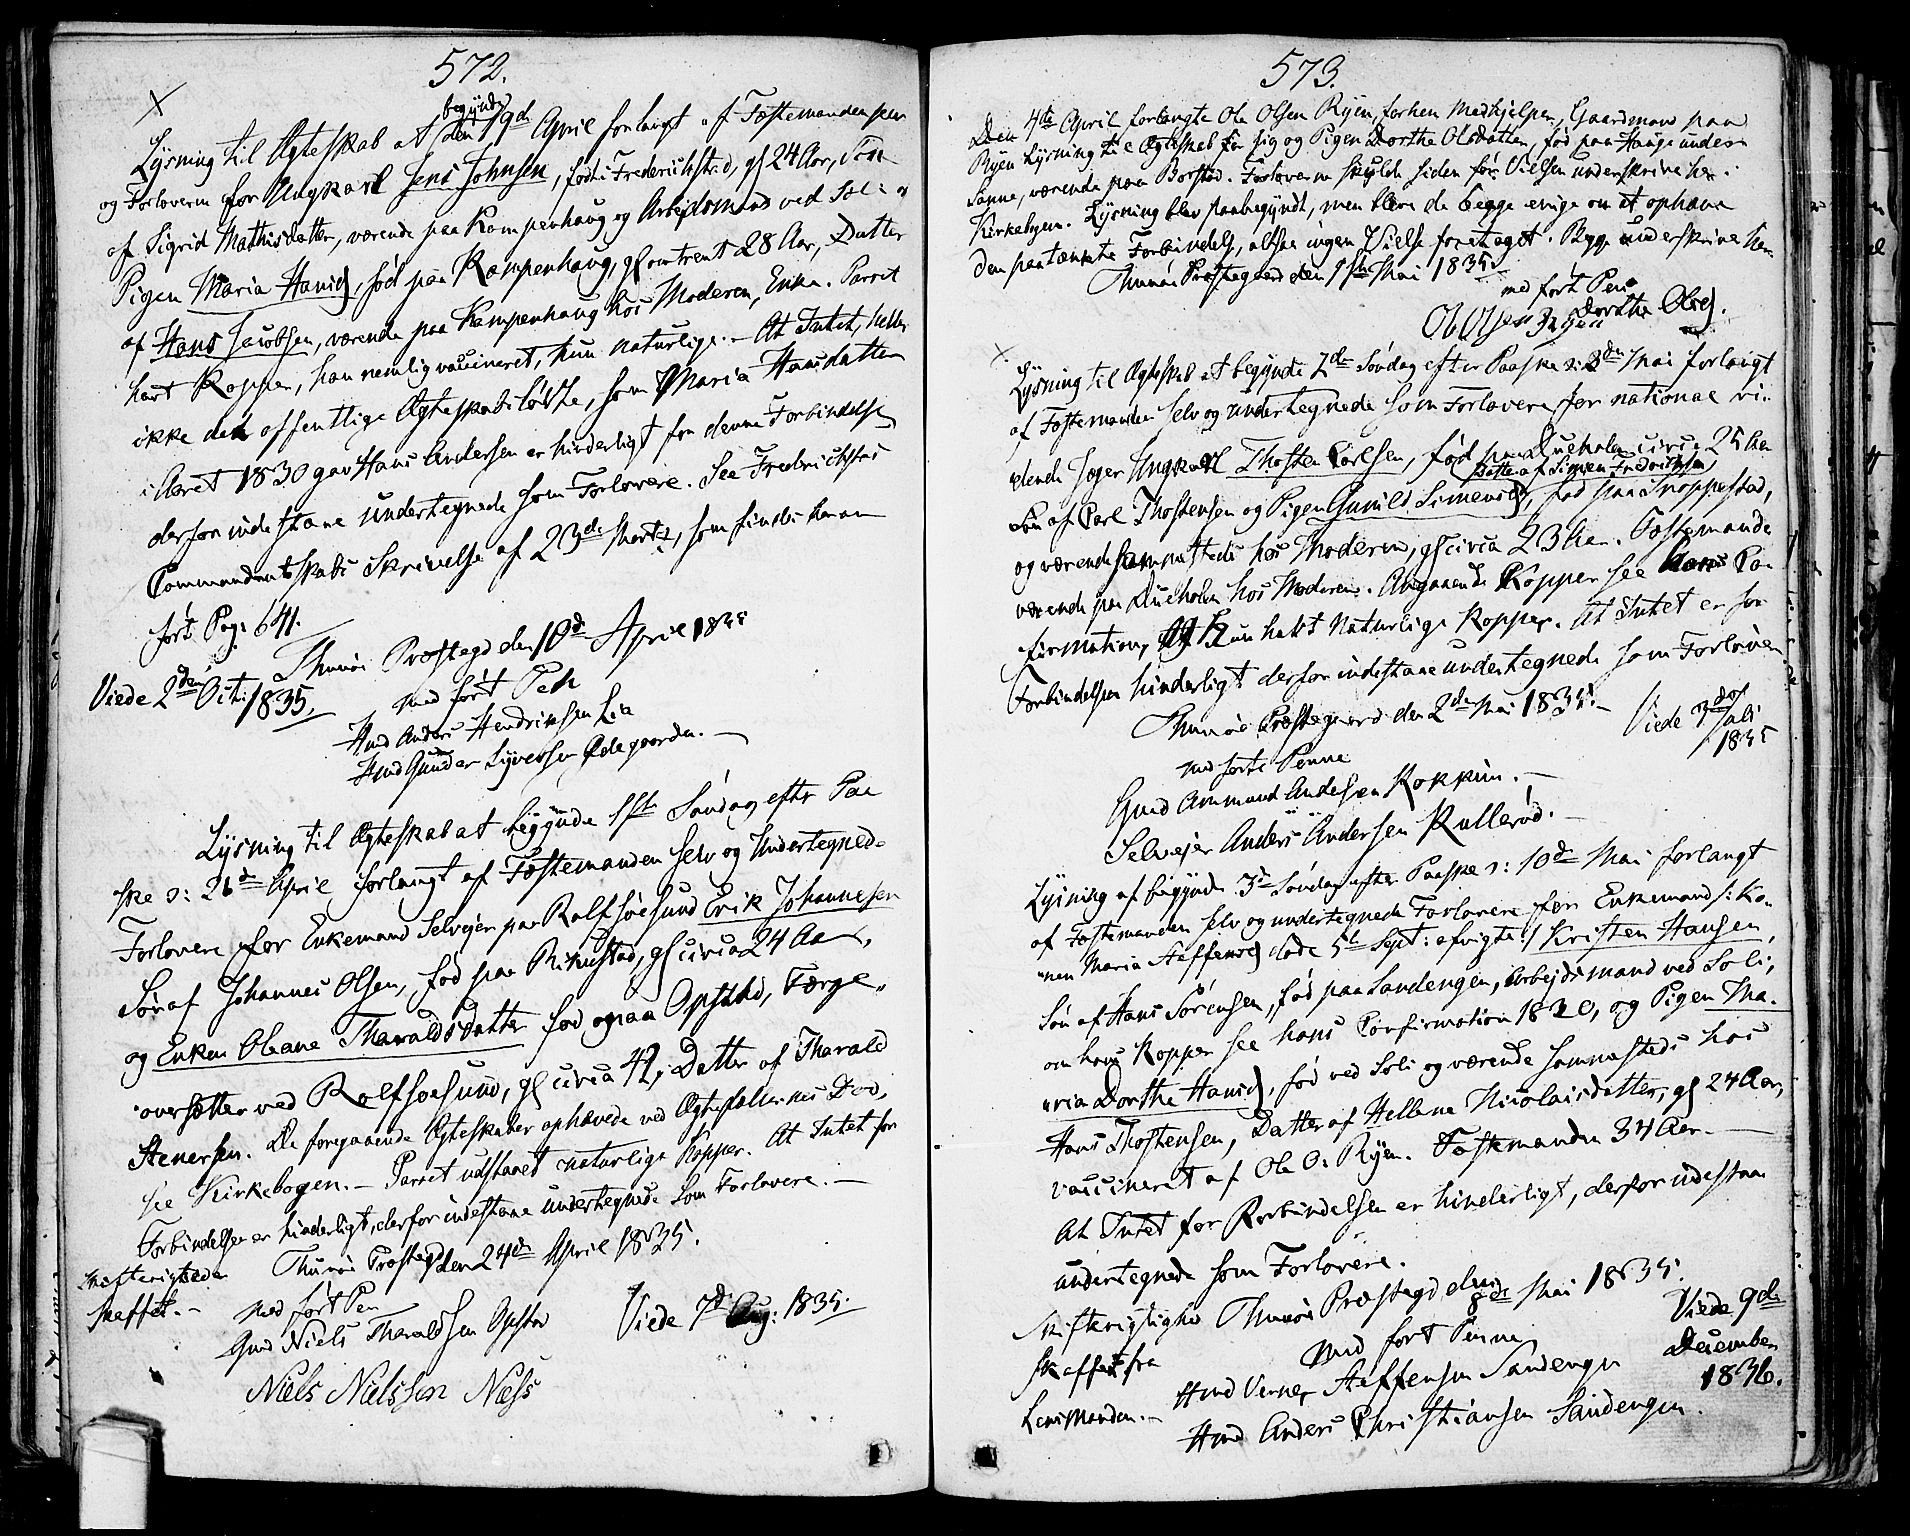 572.
×
begynde
Lysning til Ægteskab at den 19de April forlangt af Fæstemanden selv
og Forlovern for Ungkarl Jens Johnsen, født i Frederichstad, gl 24 Aar, Søn
af Sigrid Mathisdatter, værende paa Kampenhaug og Arbejdsmand ved Soli og
Pigen Maria Hansd, fød paa Kampenhaug, gl omtrent 28 Aar, Datter
af Hans Jacobsen, værende paa Kampenhaug hos Moderen, Enke. Parret
havt Kopper, han nemlig vaccineret, hun naturlige. – At Intet, heller
ikke det offentlige Ægteskabsløfte, som Maria Hansdatter
i Aaret 1830 gav Hans Andersen er hinderligt for denne Forbindelse
derfor indestaae undertegnede som Forlovere. See Fredrichstad
Commandantskabs Skrivelse af 23de Marts, som findes herom
ført Pag: 641.
Thunøe Præstegd den 10de April 1835
Viede 2den Oct: 1835.
med ført Pen
Hmd Anders Hendrichsen Lia
Hmd Gunder Syversen Ødegaarden. –
Lysning til Ægteskab at begynde 1ste Søndag efter Paa
ske ɔ: 26de April forlangt af Fæstemanden selv og Undertegnede
Forlovere for Enkemand Selvejer paa Rolfsøesund Erik Johannesen
Søn af Johannes Olsen, fød paa Rikustad, gl circa 24 Aar,
og Enken Oleane Tharaldsdatter fød paa Opstad, Færge„
oversætter ved Rolfsøesund, gl circa 42, Datter af Tharald
Stenersen. De foregaaende Ægteskaber ophævede ved Ægtefællernes Død,
see Kirkebogen. – Parret udstaaet naturlige Kopper. At Intet for
Forbindelsen er hinderligt, derfor indestaae undertegnede som Forlovere. –
Thunøe Præstegd den 24de April 1835.
Skifterigtighed
skaffet. –
med ført Pen
Gmd Niels Tharaldsen Opstad
Viede 7de Aug: 1835.
Niels Nielssen Næss
573.
Den 4de April forlangte Ole Olsen Ryen, forhen Medhjelper, Gaardmand paa
Ryen Lysning til Ægteskab for sig og Pigen Dorthe Olsdatter, fød paa Hauge under
Sanne, værende paa Borstad. Forloverne skulde siden før Vielsen underskrive her i
Kirkebogen. Lysning blev paabegyndt, men bleve de begge enige om at ophæve
den paatænkte Forbindelse, altsaa ingen Vielse foretaget. Begge underskrive her
Thunøe Præstegaard den 1ste Mai 1835
med ført Pen
Ole Olsen Ryen Dorthe Olsd.
×
Lysning til Ægteskab at begynde 2den Søndag efter Paaske ɔ: 3de Mai forlangt
af Fæstemanden selv og undertegnede som Forlovere for national ri„
dende Jæger Ungkarl Thosten Carlsen, fød paa Dueholen circa 25 Aar
Datter af Simen Fredrichsen,
Søn af Carl Thostensen og Pigen Gunild Simensd, fød paa Snoppestad,
og værende sammesteds hos Moderen, gl circa 23 Aar. Fæstemanden
værende paa Dueholen hos Moderen. Angaaende Kopper see hans Con
firmation, og Hun havt naturlige Kopper. At Intet er for
Forbindelsen hinderligt derfor indestaae undertegnede som Forlovere
Thunøe Præstegaard den 2den Mai 1835. –
Viede 3die Juli
1835
med førte Penne
Gmd Ammund Andersen Kokkim. –
Selvejer Anders Andersen Kullerød. –
Lysning at begynde 3de Søndag efter Paaske ɔ: 10de Mai forlangt
af Fæstemanden selv og undertegnede Forlovere for Enkemand /: Ko„
„nen Maria Steffensd døde 5te Sept: afvigte :/ Kristen Hansen,
Søn af Hans Sørensen, fød paa Sandengen, Arbejdsmand ved Soli,
om hans Kopper see hans Confirmation 1820, og Pigen Ma„
„ria Dorthe Hansd, fød ved Soli og værende sammesteds hos
Hans Thostensen, Datter af Hellene Nicolaisdatter, gl 24 Aar,
vaccineret af Ole O: Ryen. Fæstemanden 34 Aar. –
At Intet for Forbindelsen er hinderligt, derfor indestaa
undertegnede som Forlovere.
Thunøe Præstegd den 8de Mai 1835.
Skifterigtighed
skaffet fra
Lensmanden. –
med ført Penne
Viede 9de
December
1836.
Hmd Verner Steffensen Sandengen
Hmd Anders Christiansen Sandengen.